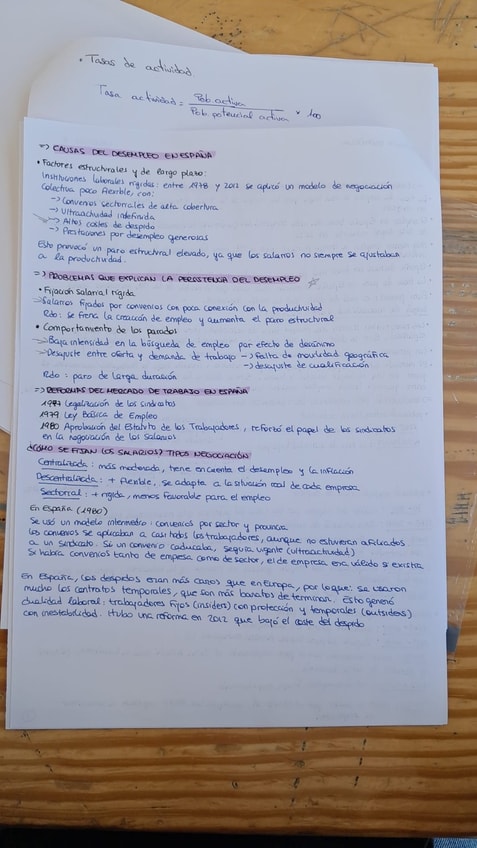 • Tasas de actividad
Tasa actividad = Pob. activa / Pob. potencial activa × 100
=> CAUSAS DEL DESEMPLEO EN ESPAÑA
• Factores estructurales y de largo plazo:
Instituciones laborales rígidas: entre 1978 y 2012 se aplicó un modelo de negociación
colectiva poco flexible, con:
-> Convenios sectoriales de alta cobertura
-> Ultraactividad indefinida
-> Altos costes de despido
-> Prestaciones por desempleo generosas
Esto provocó un paro estructural elevado, ya que los salarios no siempre se ajustaban
a la productividad.
=> PROBLEMAS QUE EXPLICAN LA PERSISTENCIA DEL DESEMPLEO
• Fijación salarial rígida
-> Salarios fijados por convenios con poca conexión con la productividad
Rdo: se frena la creación de empleo y aumenta el paro estructural
• Comportamiento de los parados
-> Baja intensidad en la búsqueda de empleo por efecto de desánimo
-> Desajuste entre oferta y demanda de trabajo -> Falta de movilidad geográfica
-> desajuste de cualificación
Rdo: paro de larga duración
=> REFORMAS DEL MERCADO DE TRABAJO EN ESPAÑA
1977 Legalización de los sindicatos
1979 Ley Básica de Empleo
1980 Aprobación del Estatuto de los Trabajadores, reforzó el papel de los sindicatos
en la negociación de los salarios
¿CÓMO SE FIJAN LOS SALARIOS? TIPOS NEGOCIACIÓN
Centralizada: más moderada, tiene en cuenta el desempleo y la inflación
Descentralizada: + flexible, se adapta a la situación real de cada empresa
Sectorial: + rígida, menos favorable para el empleo
En España (1980)
Se usó un modelo intermedio: convenios por sector y provincia
Los convenios se aplicaban a casi todos los trabajadores, aunque no estuvieran afiliados
a un sindicato. Si un convenio caducaba, seguía vigente (ultraactividad)
Si había convenios tanto de empresa como de sector, el de empresa era válido si existía
En España, los despidos eran más caros que en Europa, por lo que: se usaron
mucho los contratos temporales, que son más baratos de terminar. Esto generó
dualidad laboral: trabajadores fijos (insiders) con protección y temporales (outsiders)
con inestabilidad. Hubo una reforma en 2012 que bajó el coste del despido